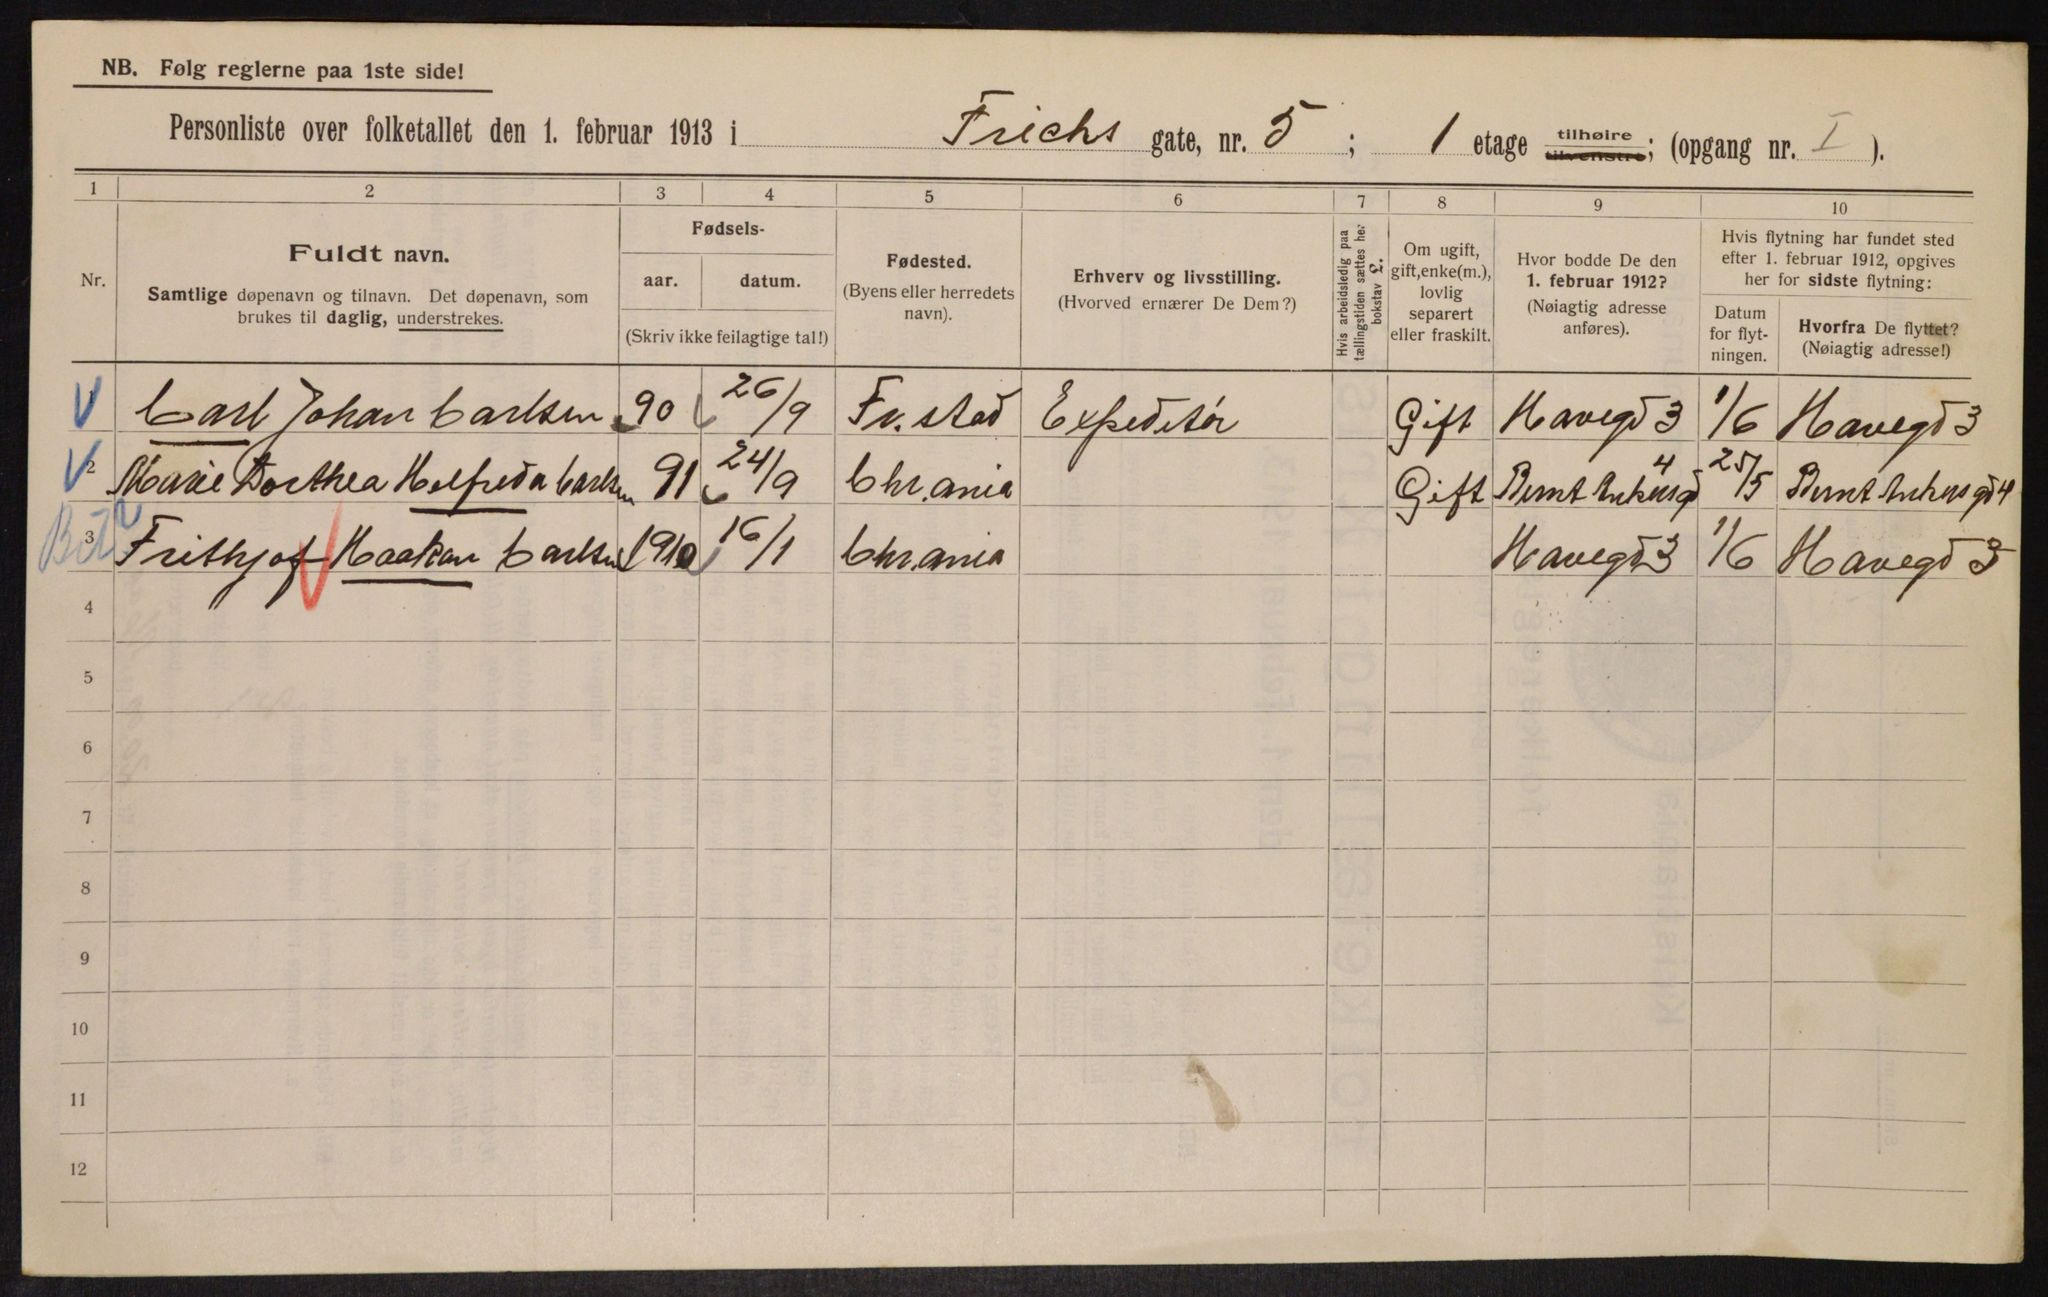 NB. Følg reglerne paa 1ste side!
Personliste over folketallet den 1. februar 1913 i Frichs gate, nr. 5 ; 1 etage tilhøire tilvenstre; (opgang nr. I ).
1 2 3 4 5 6 7 8 9 10
Nr.
Fuldt navn.
Samtlige døpenavn og tilnavn. Det døpenavn, som
brukes til daglig, understrekes.
Fødsels-
aar. datum.
(Skriv ikke feilagtige tal!)
Fødested.
(Byens eller herredets
navn).
Erhverv og livsstilling.
(Hvorved ernærer De Dem?)
Hvis arbeidsledig paa
tællingstiden sættes her
bokstav L.
Om ugift,
gift, enke(m.),
lovlig
separert
eller fraskilt.
Hvor bodde De den
1. februar 1912?
(Nøiagtig adresse
anføres).
Hvis flytning har fundet sted
efter 1. februar 1912, opgives
her for sidste flytning:
Datum
for flyt-
ningen.
Hvorfra De flyttet?
(Nøiagtig adresse!)
1 Carl Johan Carlsen 90 26/9 Fr.stad Expeditør Gift Havegd 3 1/6 Havegd 3
2 Marie Dorthea Helfrida Carlsen 91 24/9 Chr.ania Gift Bernt Ankersgd 4 25/5 Bernt Ankersgd 4
3 Frithjof Haakon Carlsen 1910 16/1 Chr.ania Havegd 3 1/6 Havegd 3
4
5
6
7
8
9
10
11
12